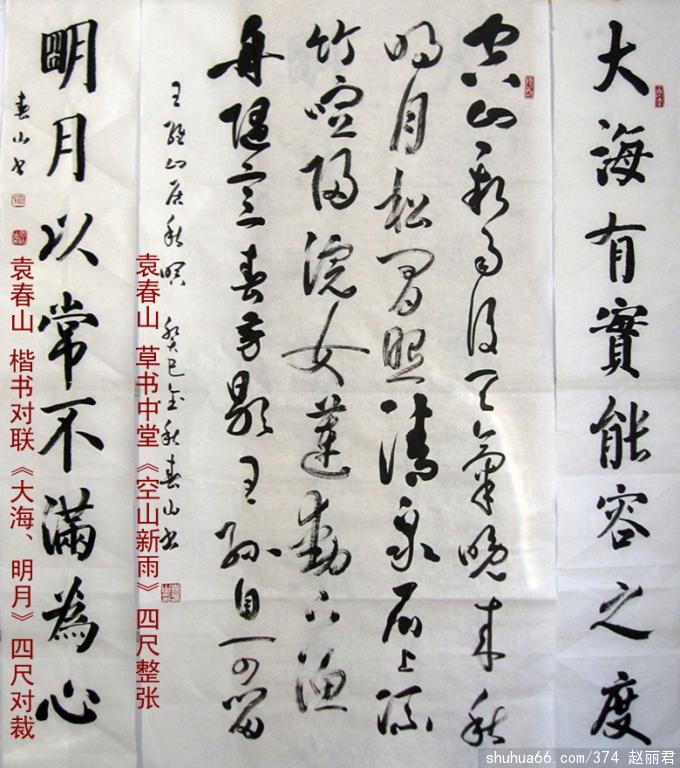 大海有實能容之度
空山新雨後天氣晚来秋
明月松間照清泉石上流
竹喧歸浣女蓮動下漁
舟隨意春芳歇王孫自可留
王維山居秋暝 癸巳金秋春山书
袁春山 草书中堂《空山新雨》四尺整张
明月以常不滿為心
春山书
袁春山 楷书对联《大海、明月》四尺对裁
shuhua66.com/374 赵丽君